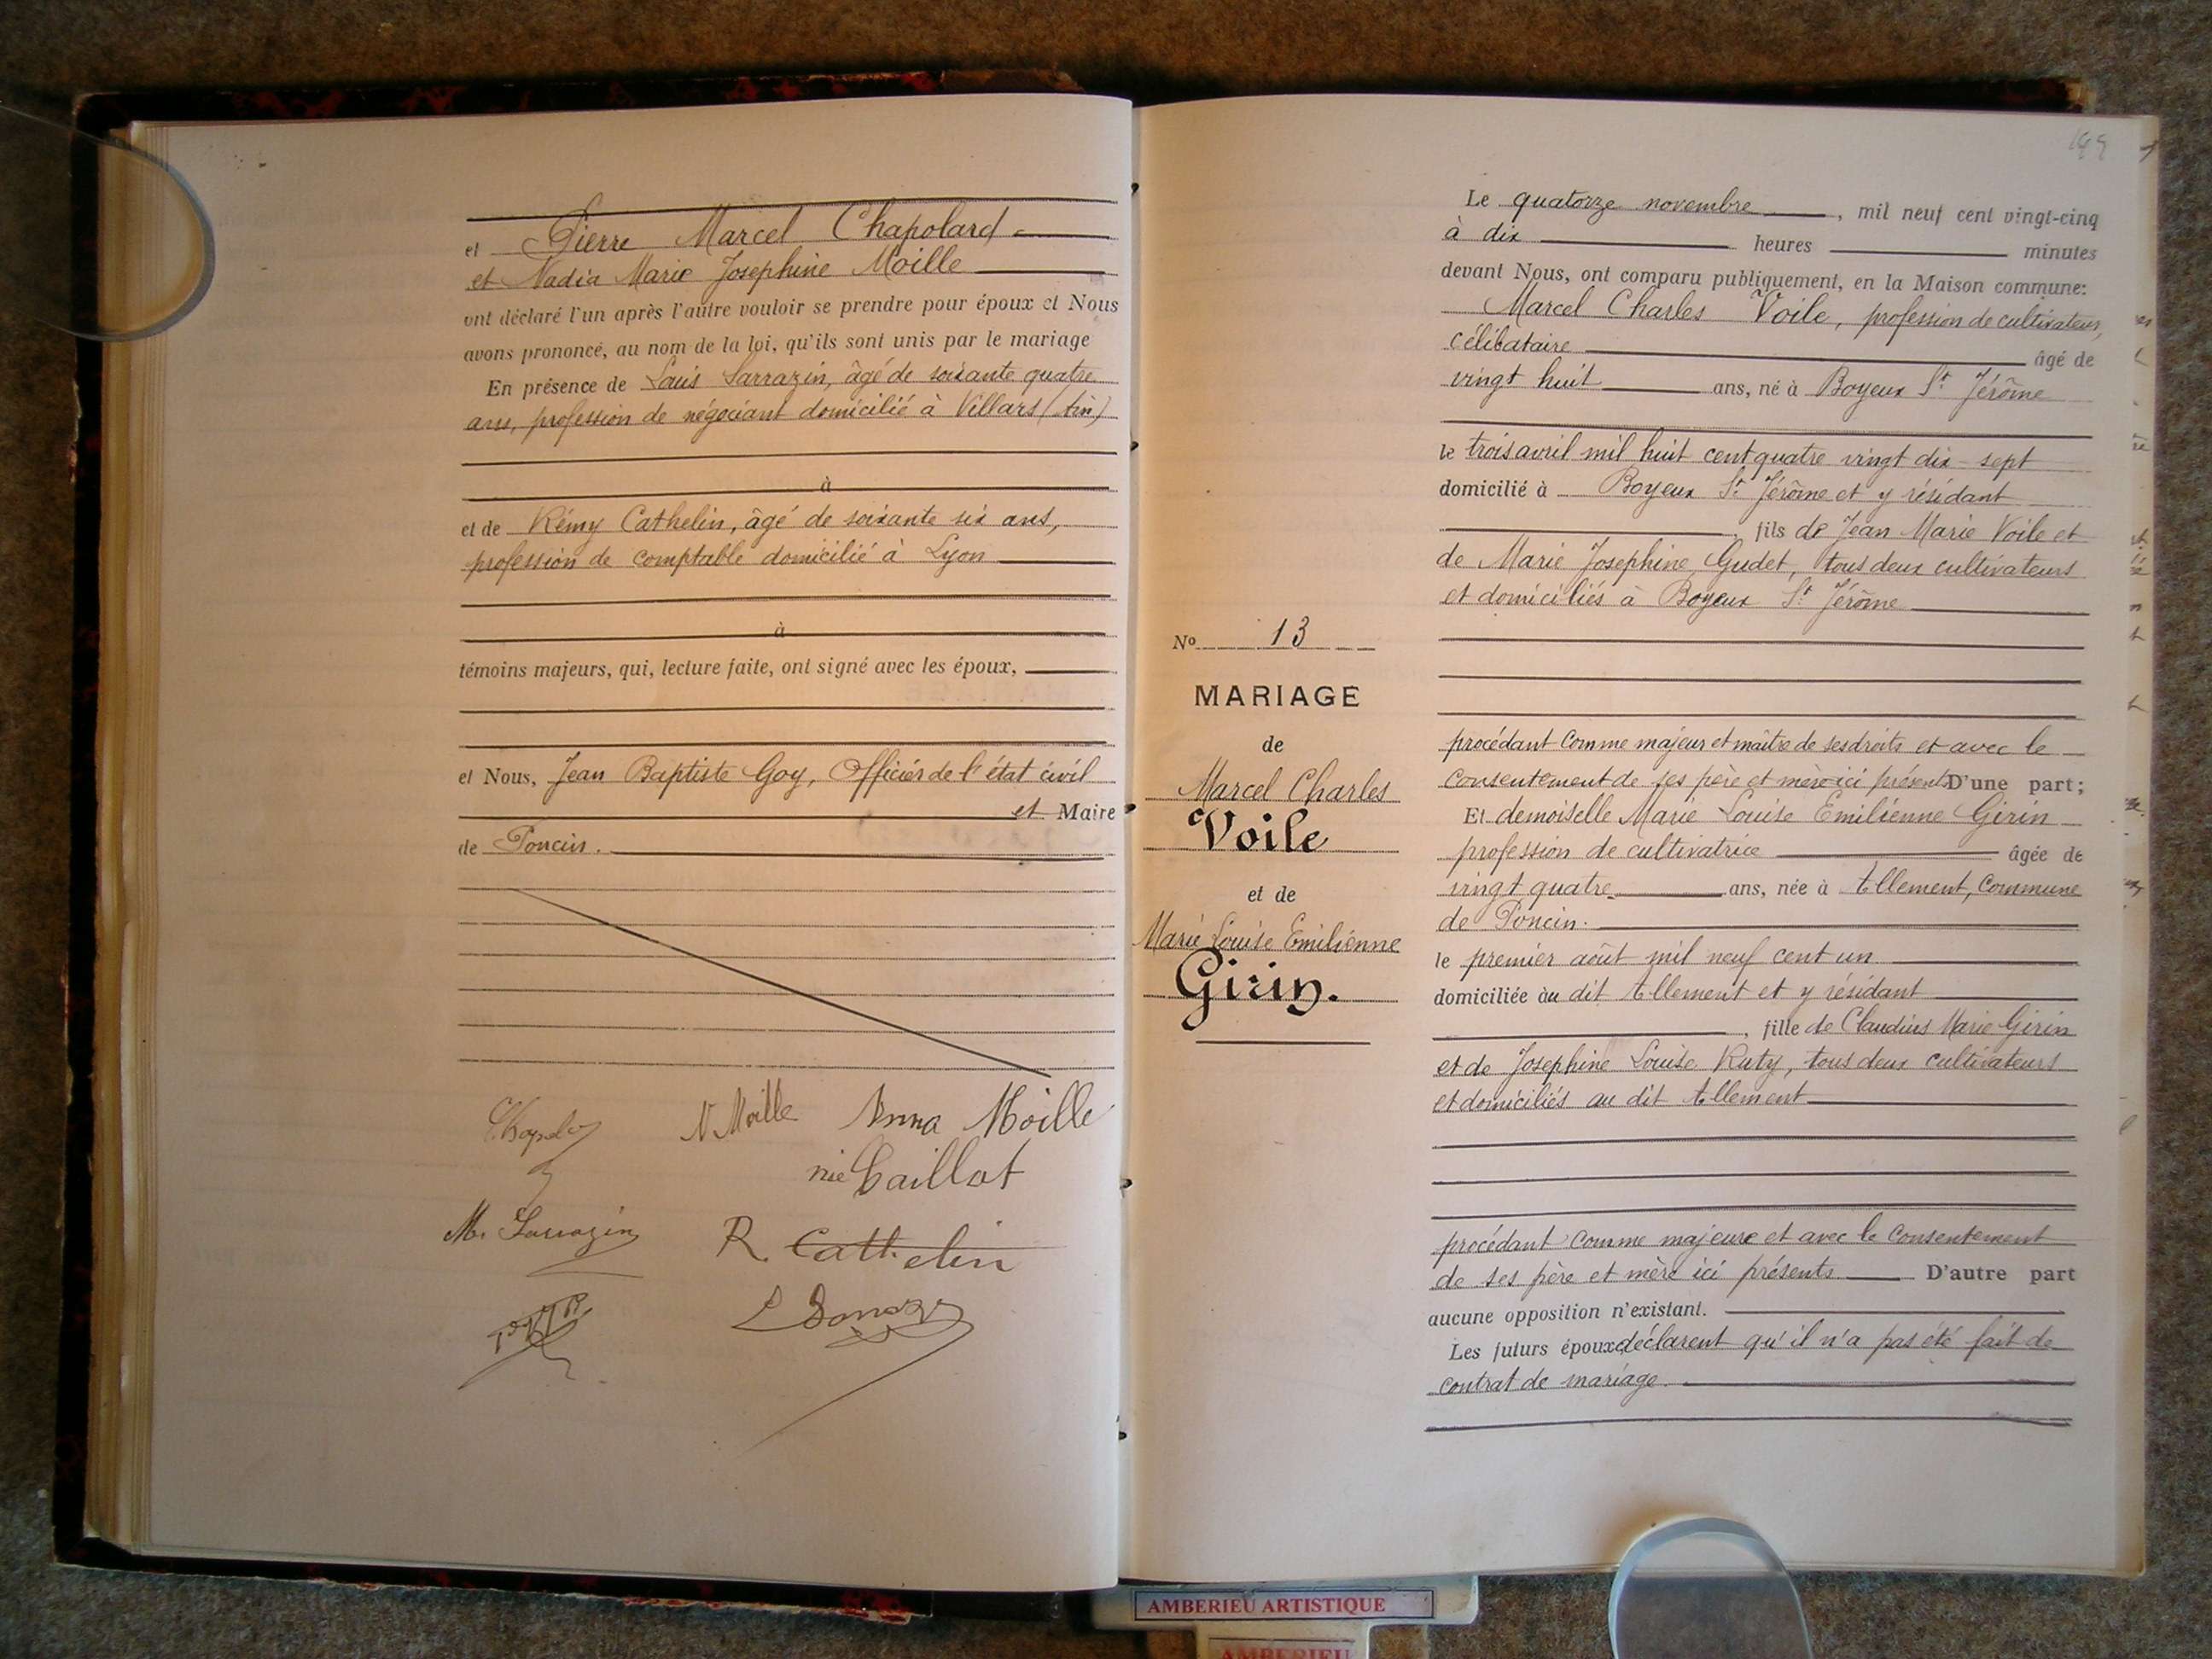 et Pierre Marcel Chapolard
et Nadia Marie Josephine Moille
ont déclaré l'un après l'autre vouloir se prendre pour époux et Nous
avons prononcé, au nom de la loi, qu'ils sont unis par le mariage
En présence de Louis Sarrazin, âgé de soixante quatre
ans, profession de négociant domicilié à Villars (Ain)
à
et de Rémy Cathelin, âgé de soixante six ans,
profession de comptable domicilié à Lyon
à
témoins majeurs, qui, lecture faite, ont signé avec les époux,
et Nous, Jean Baptiste Goy, Officier de l'état civil
et Maire
de Poncin.
N Moille Anna Moille
née Caillat
M. Sarrazin R. Cathelin
199
Le quatorze novembre, mil neuf cent vingt-cinq
à dix heures minutes
devant Nous, ont comparu publiquement, en la Maison commune:
Marcel Charles Voile, profession de cultivateur,
célibataire âgé de
vingt huit ans, né à Boyeux St Jérôme
le trois avril mil huit cent quatre vingt dix-sept
domicilié à Boyeux St Jérôme et y résidant
, fils de Jean Marie Voile et
de Marie Josephine Gudet, tous deux cultivateurs
et domiciliés à Boyeux St Jérôme
No 13
MARIAGE
de
Marcel Charles
Voile
et de
Marie Louise Emilienne
Girin.
procédant comme majeur et maître de ses droits et avec le
consentement de ses père et mère ici présents D'une part;
Et demoiselle Marie Louise Emilienne Girin
profession de cultivatrice âgée de
vingt quatre ans, née à Allement, commune
de Poncin.
le premier août mil neuf cent un
domiciliée au dit Allement et y résidant
, fille de Claudius Marie Girin
et de Josephine Louise Ruty, tous deux cultivateurs
et domiciliés au dit Allement
procédant comme majeure et avec le consentement
de ses père et mère ici présents D'autre part
aucune opposition n'existant.
Les futurs époux déclarent qu'il n'a pas été fait de
contrat de mariage.
AMBERIEU ARTISTIQUE
AMBERIEU